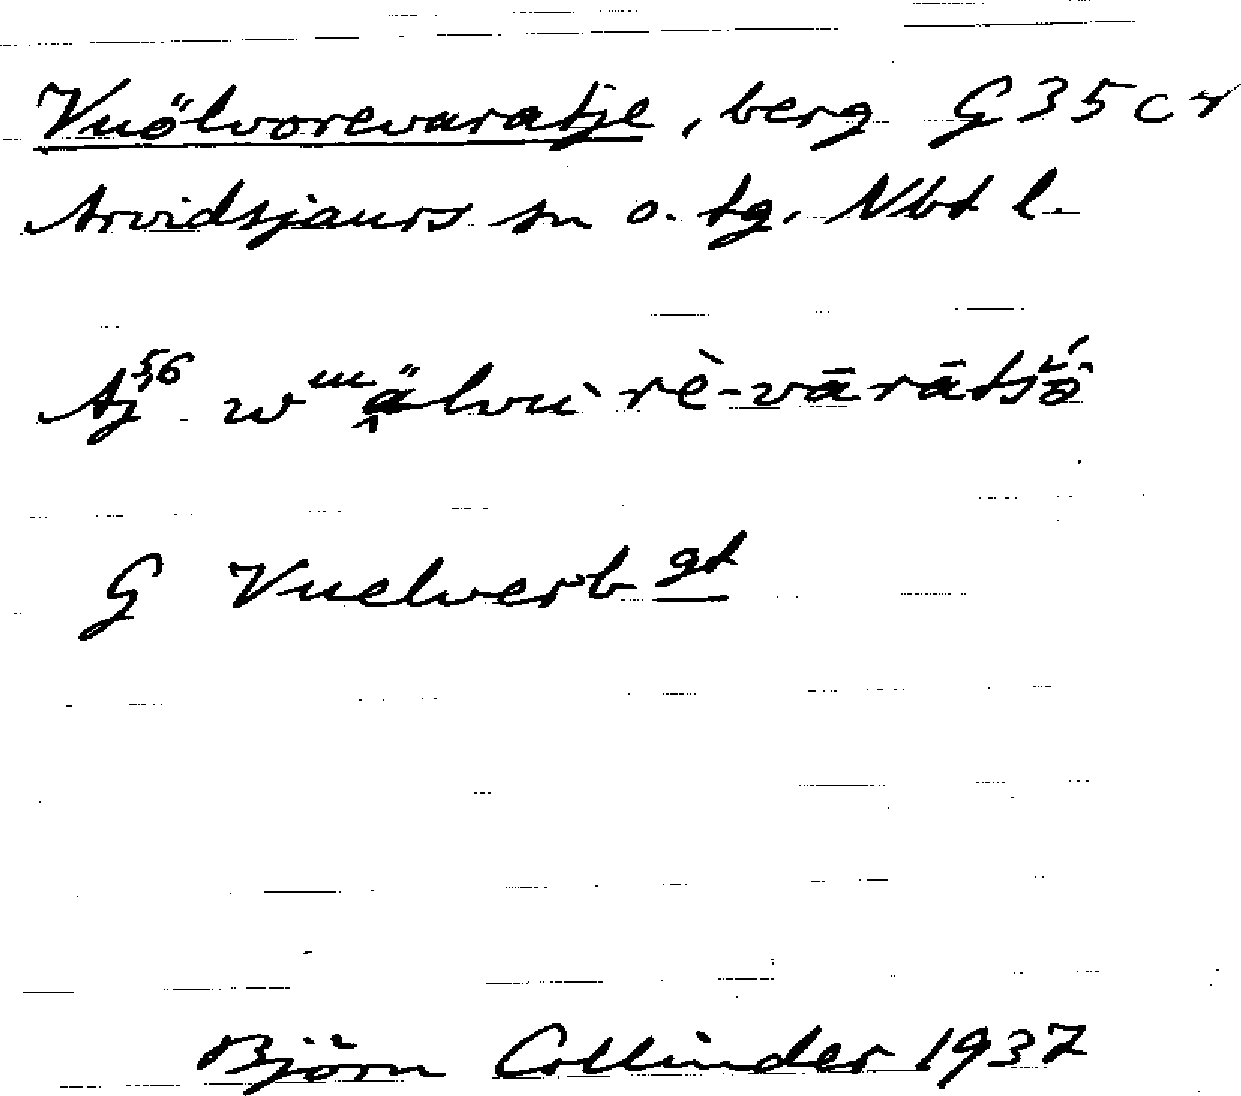 Vuölvorevaratje, berg G 35 c r
Arvidsjaurs sn o. tg. Nbt l.
Aj 56 w älvù rè-vārāts
G Vuelverb gt
Björn Collinder 1937